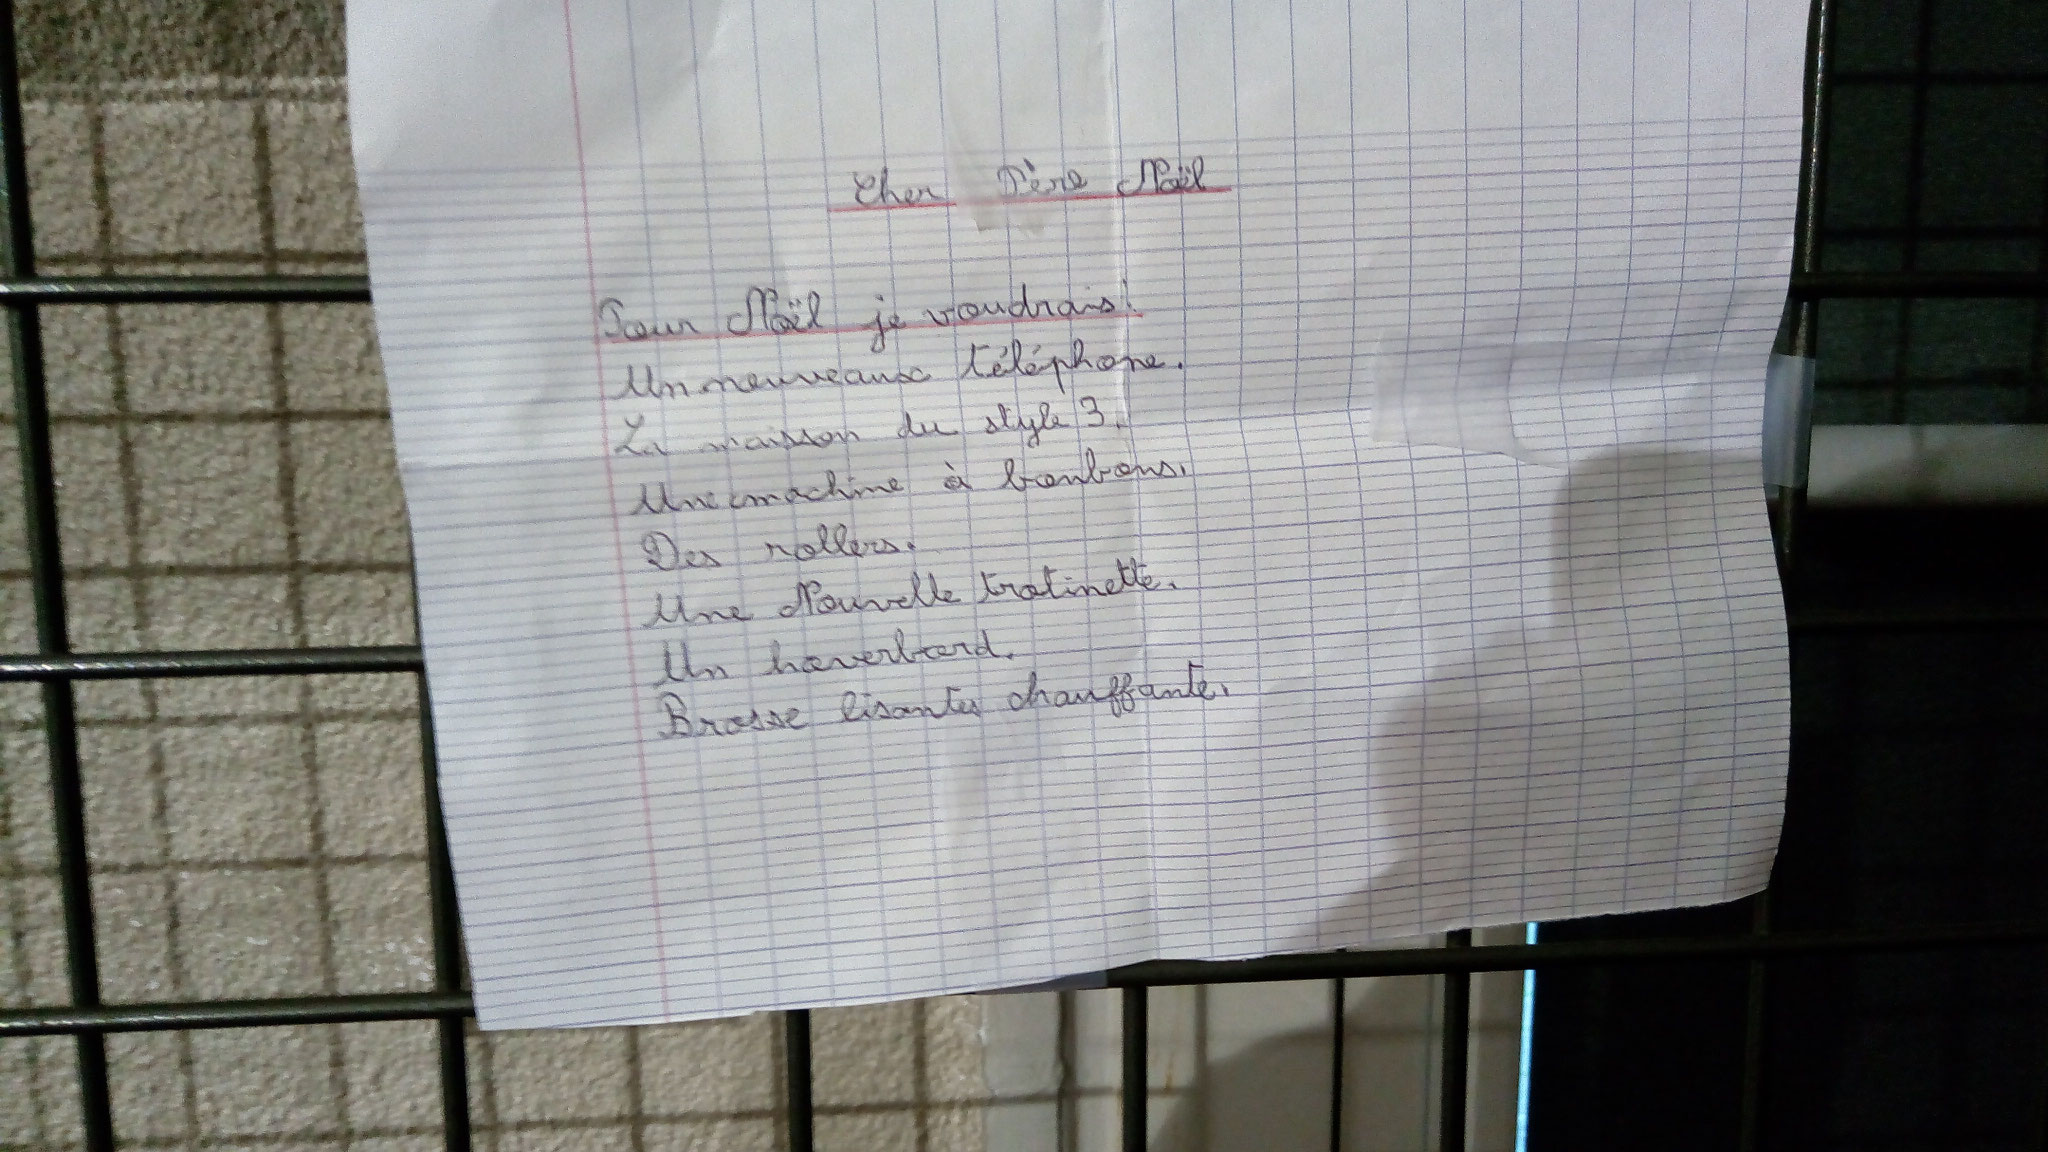 Cher Père Noël
Pour Noël je voudrais:
Un nouveaux téléphone.
La maison du style 3.
Une machine à bonbons.
Des rollers.
Une Nouvelle trotinette.
Un hoverbord.
Brosse lisante chauffante.